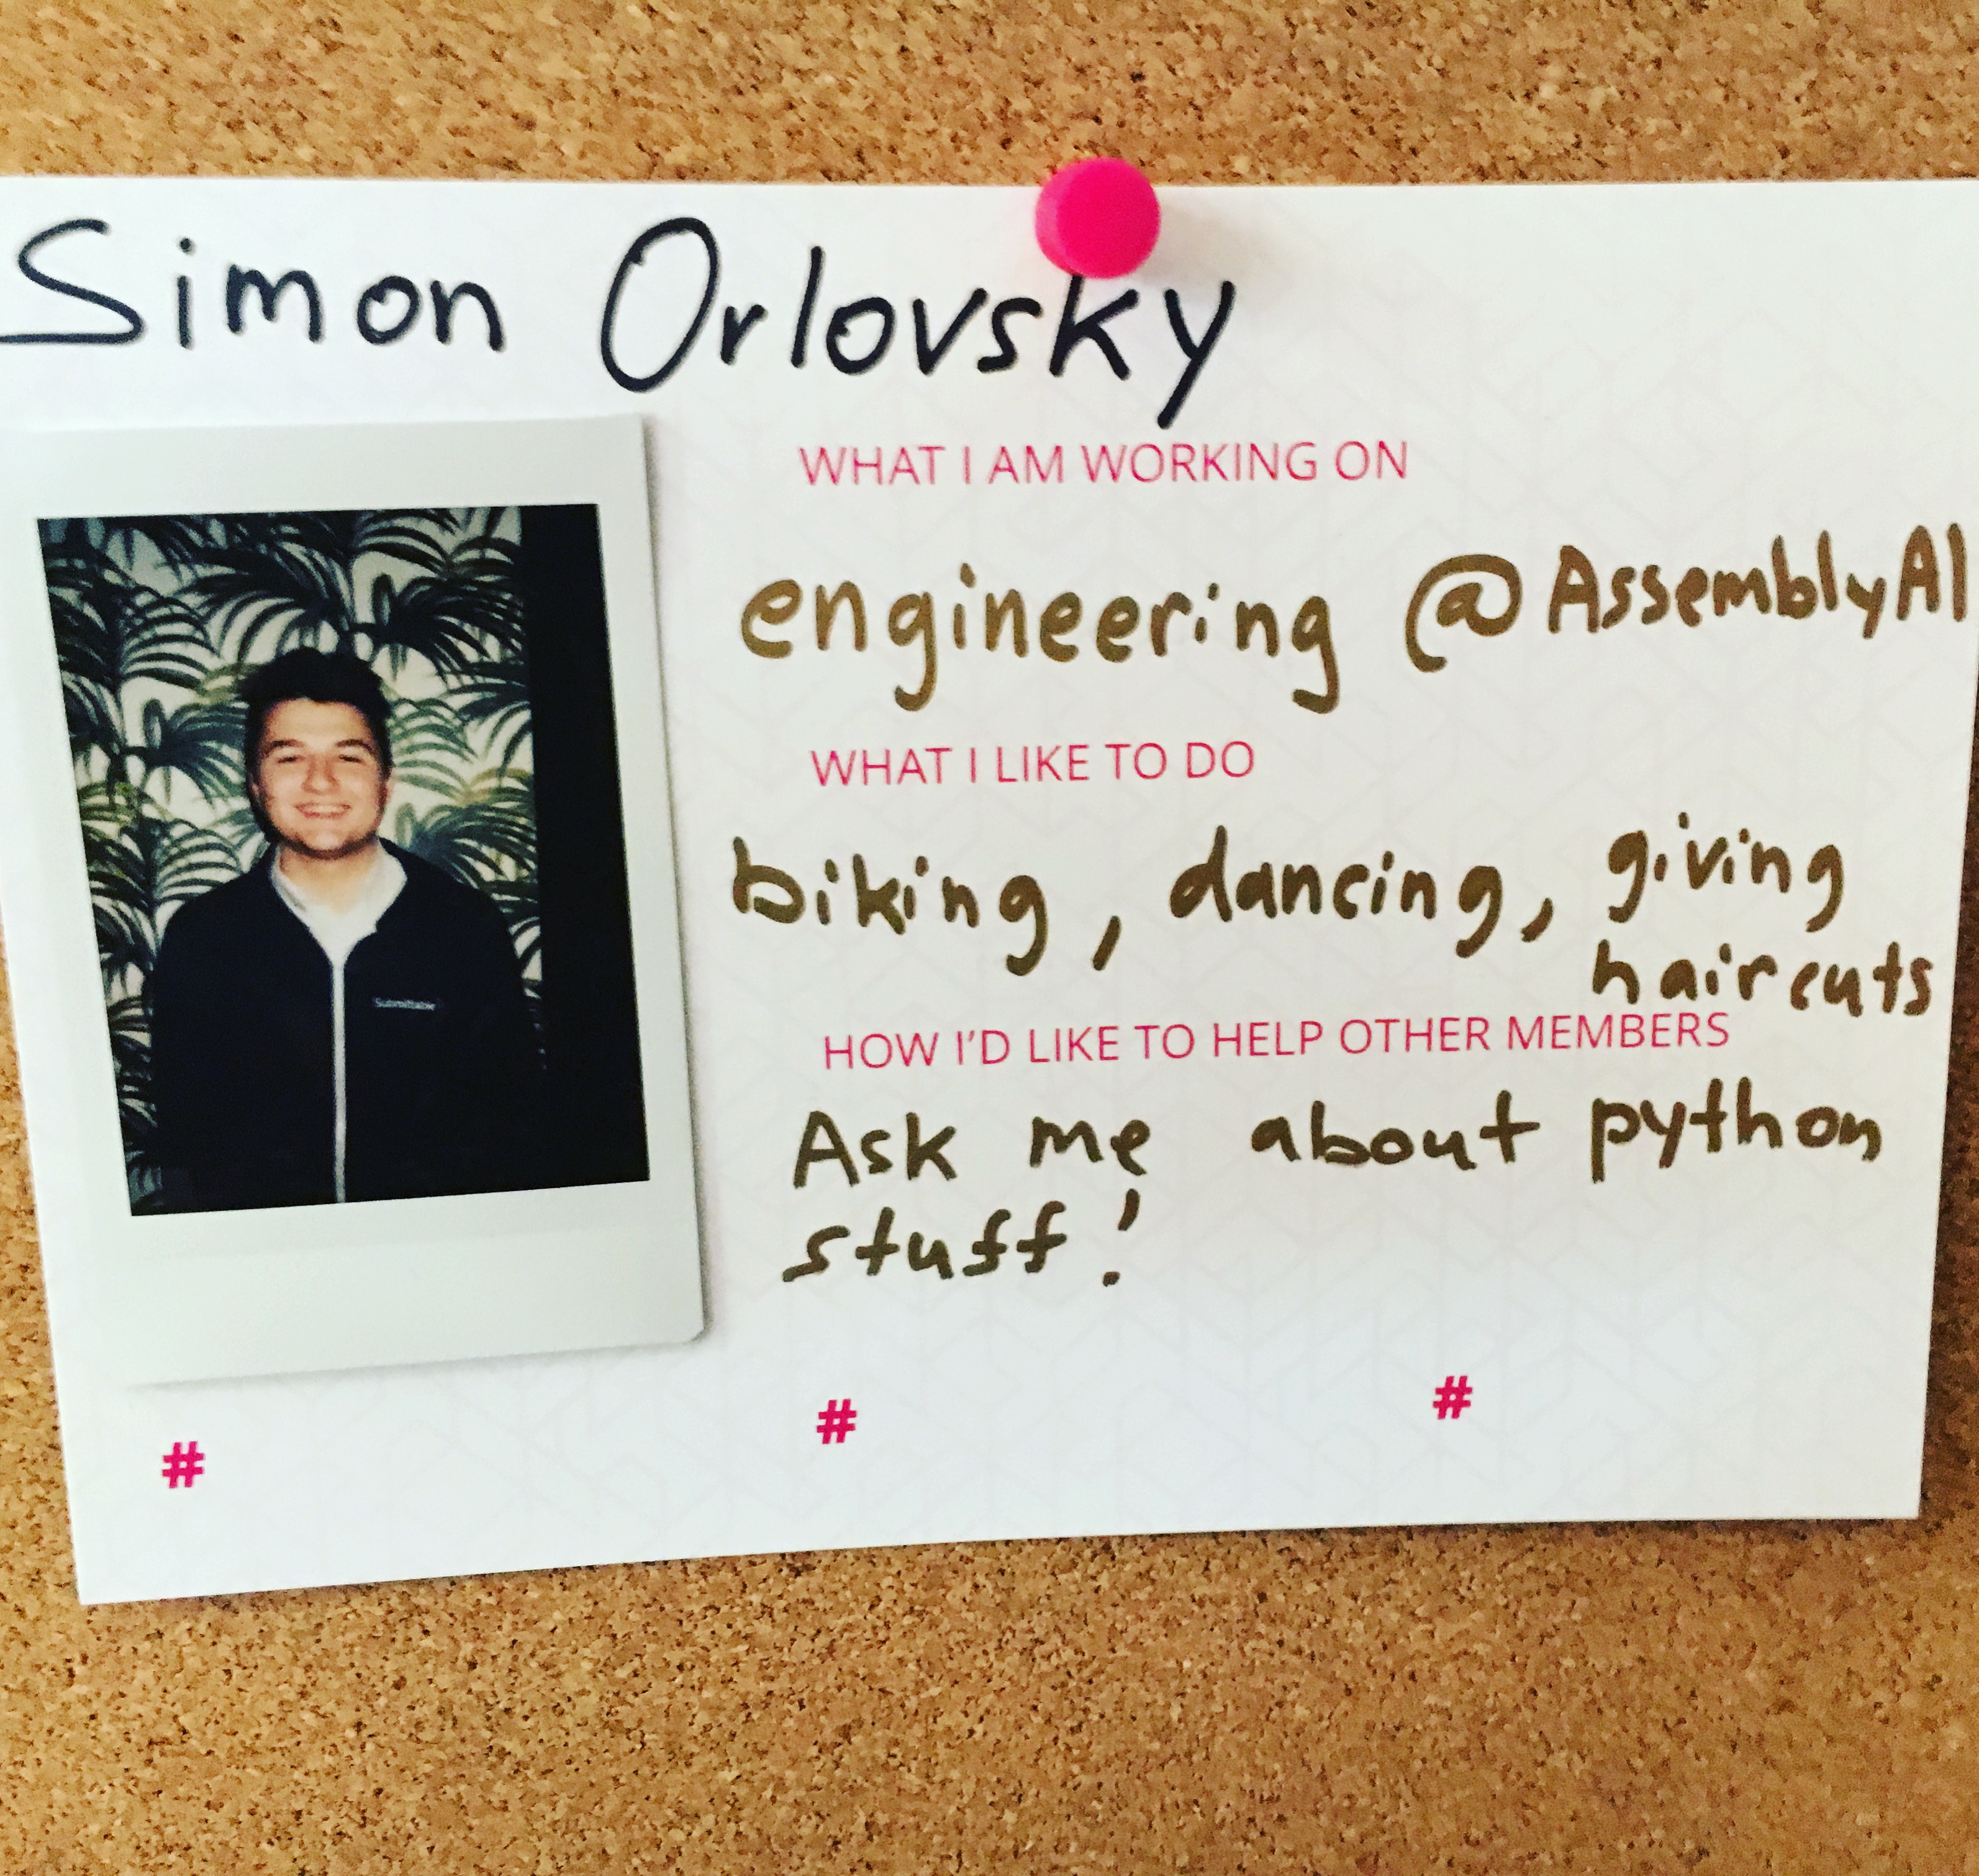 Simon Orlovsky
WHAT I AM WORKING ON
engineering @AssemblyAI
WHAT I LIKE TO DO
biking, dancing, giving
haircuts
HOW I'D LIKE TO HELP OTHER MEMBERS
Ask me about python
stuff!
Submittable
# # #